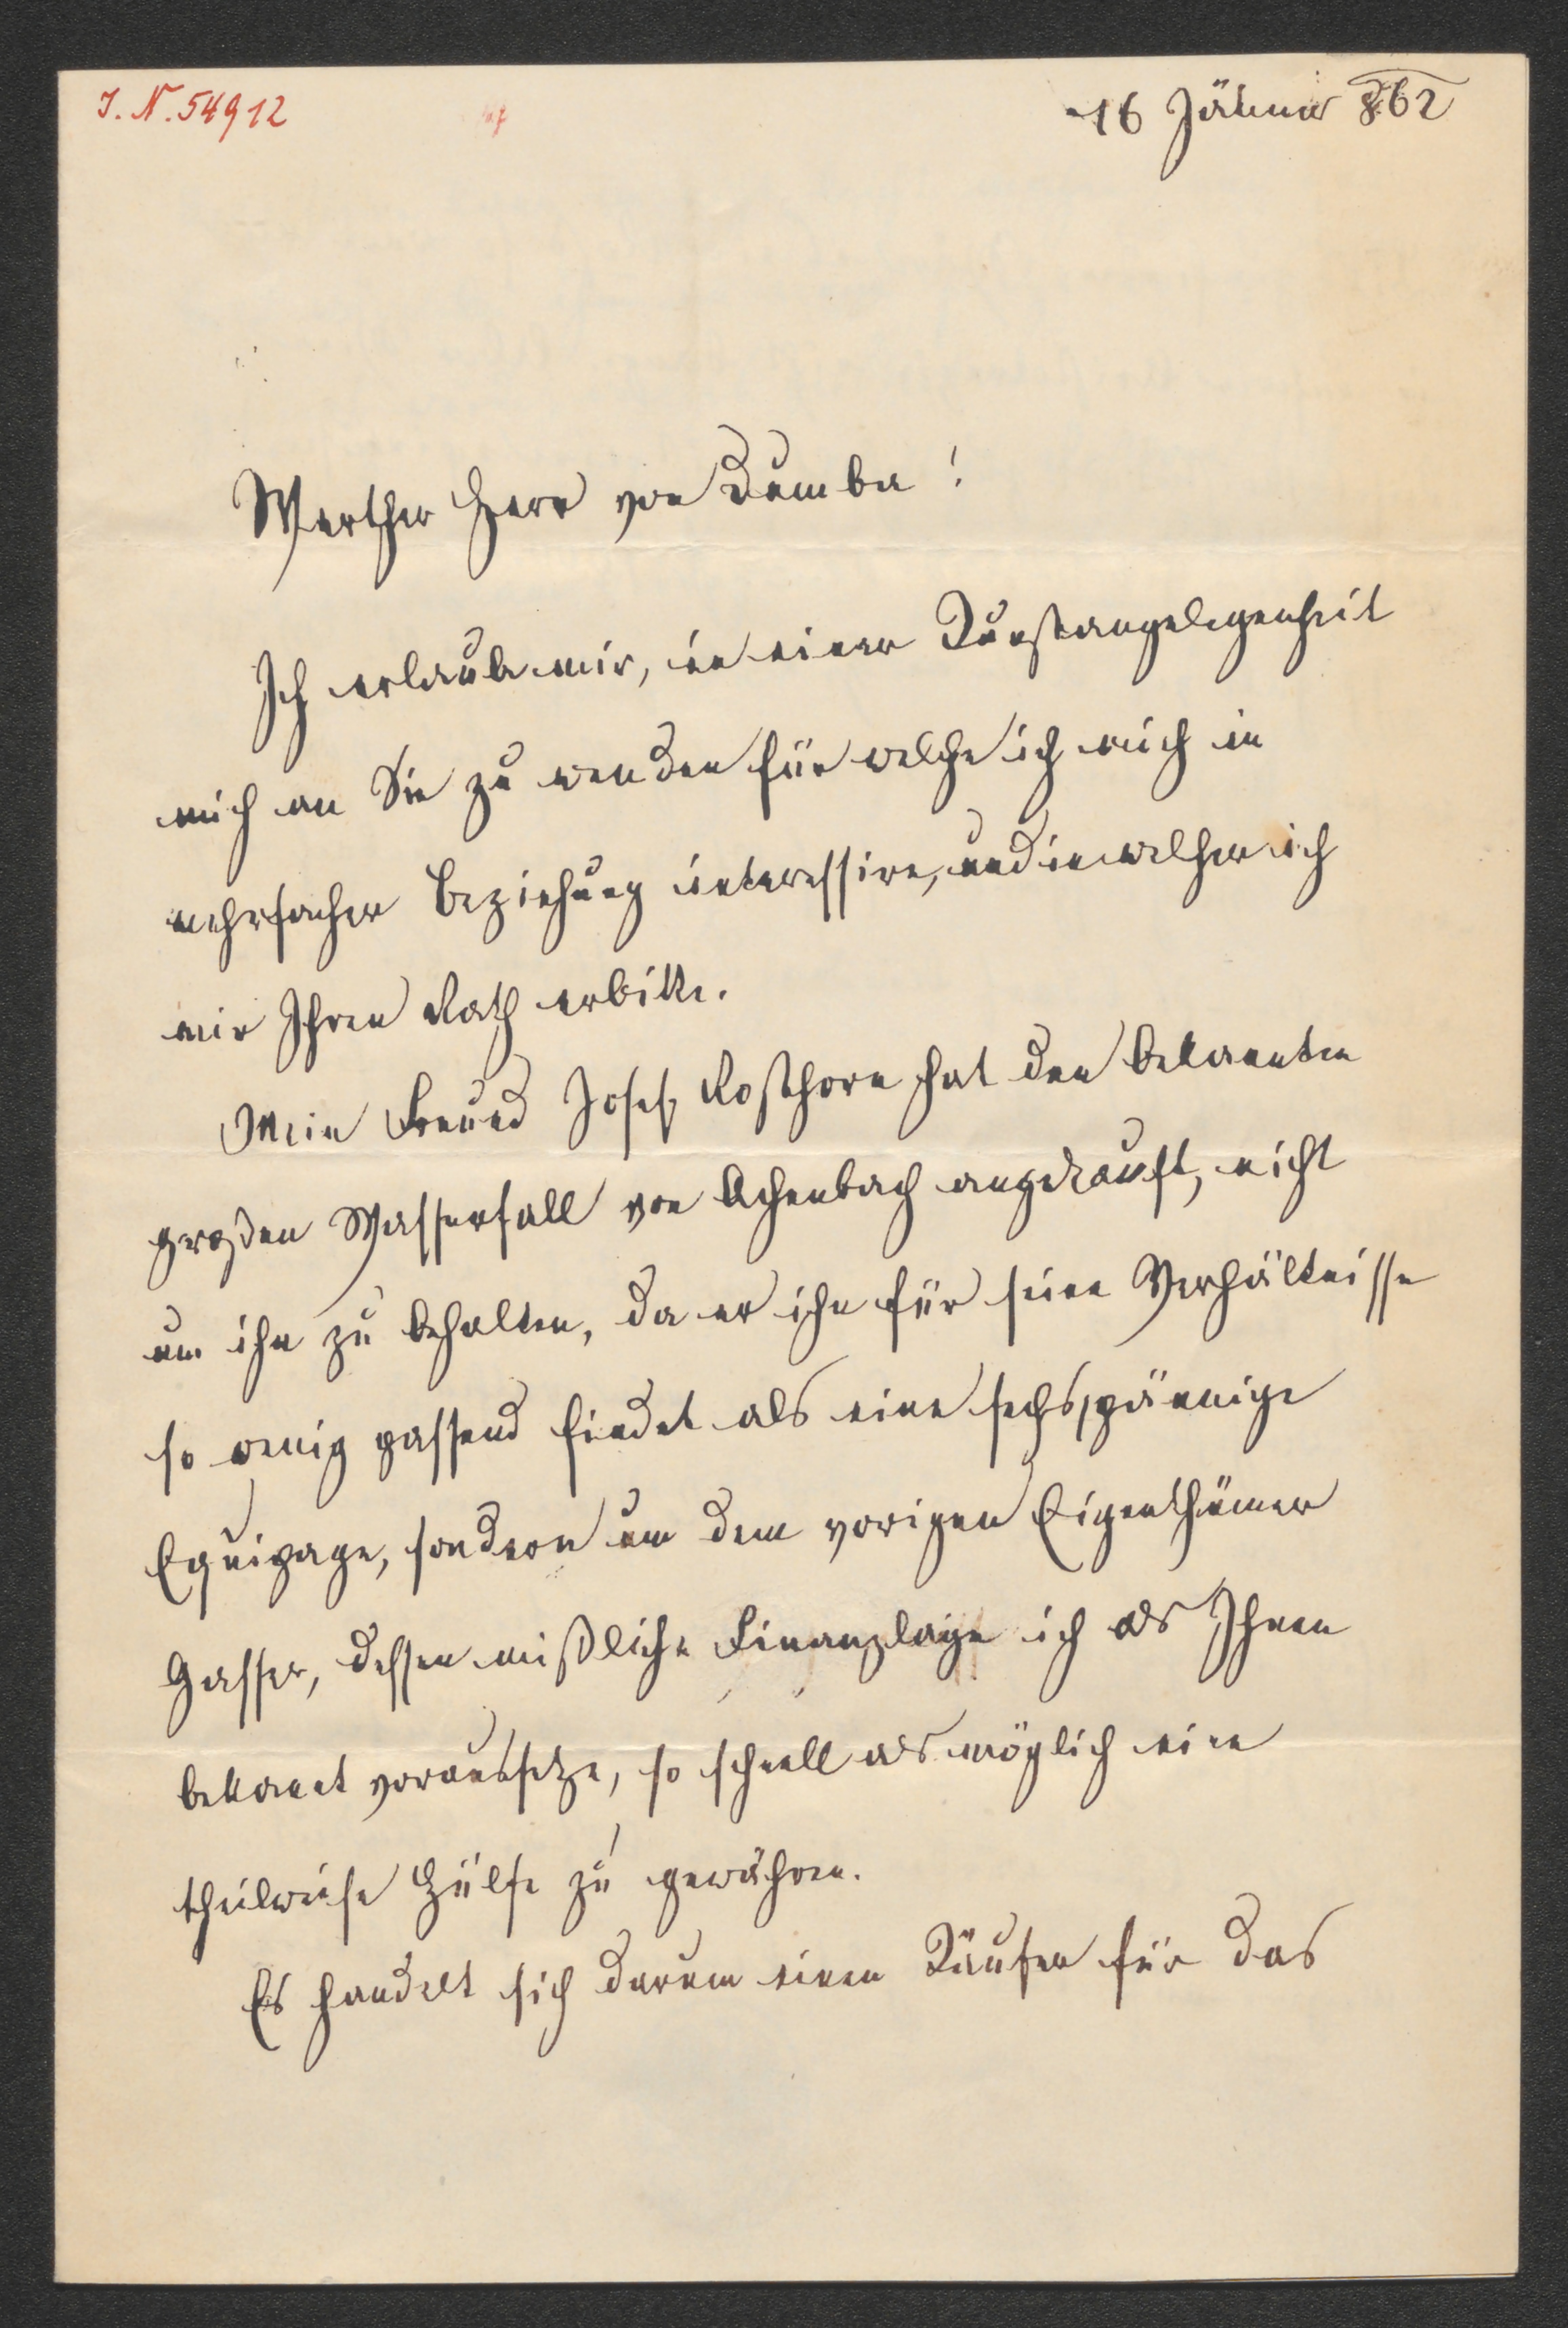 I. N. 54912
16 Jänner 862
Werther Herr von Dumba!
Ich erlaube mir, in einer Kunstangelegenheit
mich an Sie zu wenden für welche ich mich in
mehrfacher Beziehung interessire, und in welcher ich
mir Ihren Rath erbitte.
Mein Freund Josef Rosthorn hat den bekannten
großen Wasserfall von Achenbach angekauft, nicht
um ihn zu behalten, da er ihn für seine Verhältnisse
so wenig passend findet als eine sechsspännige
Equipage, sondern um dem vorigen Eigenthümer
Gasser, dessen mißliche Finanzlage ich als Ihnen
bekannt voraussetze, so schnell als möglich eine
theilweise Hülfe zu gewähren.
Es handelt sich darum einen Käufer für das